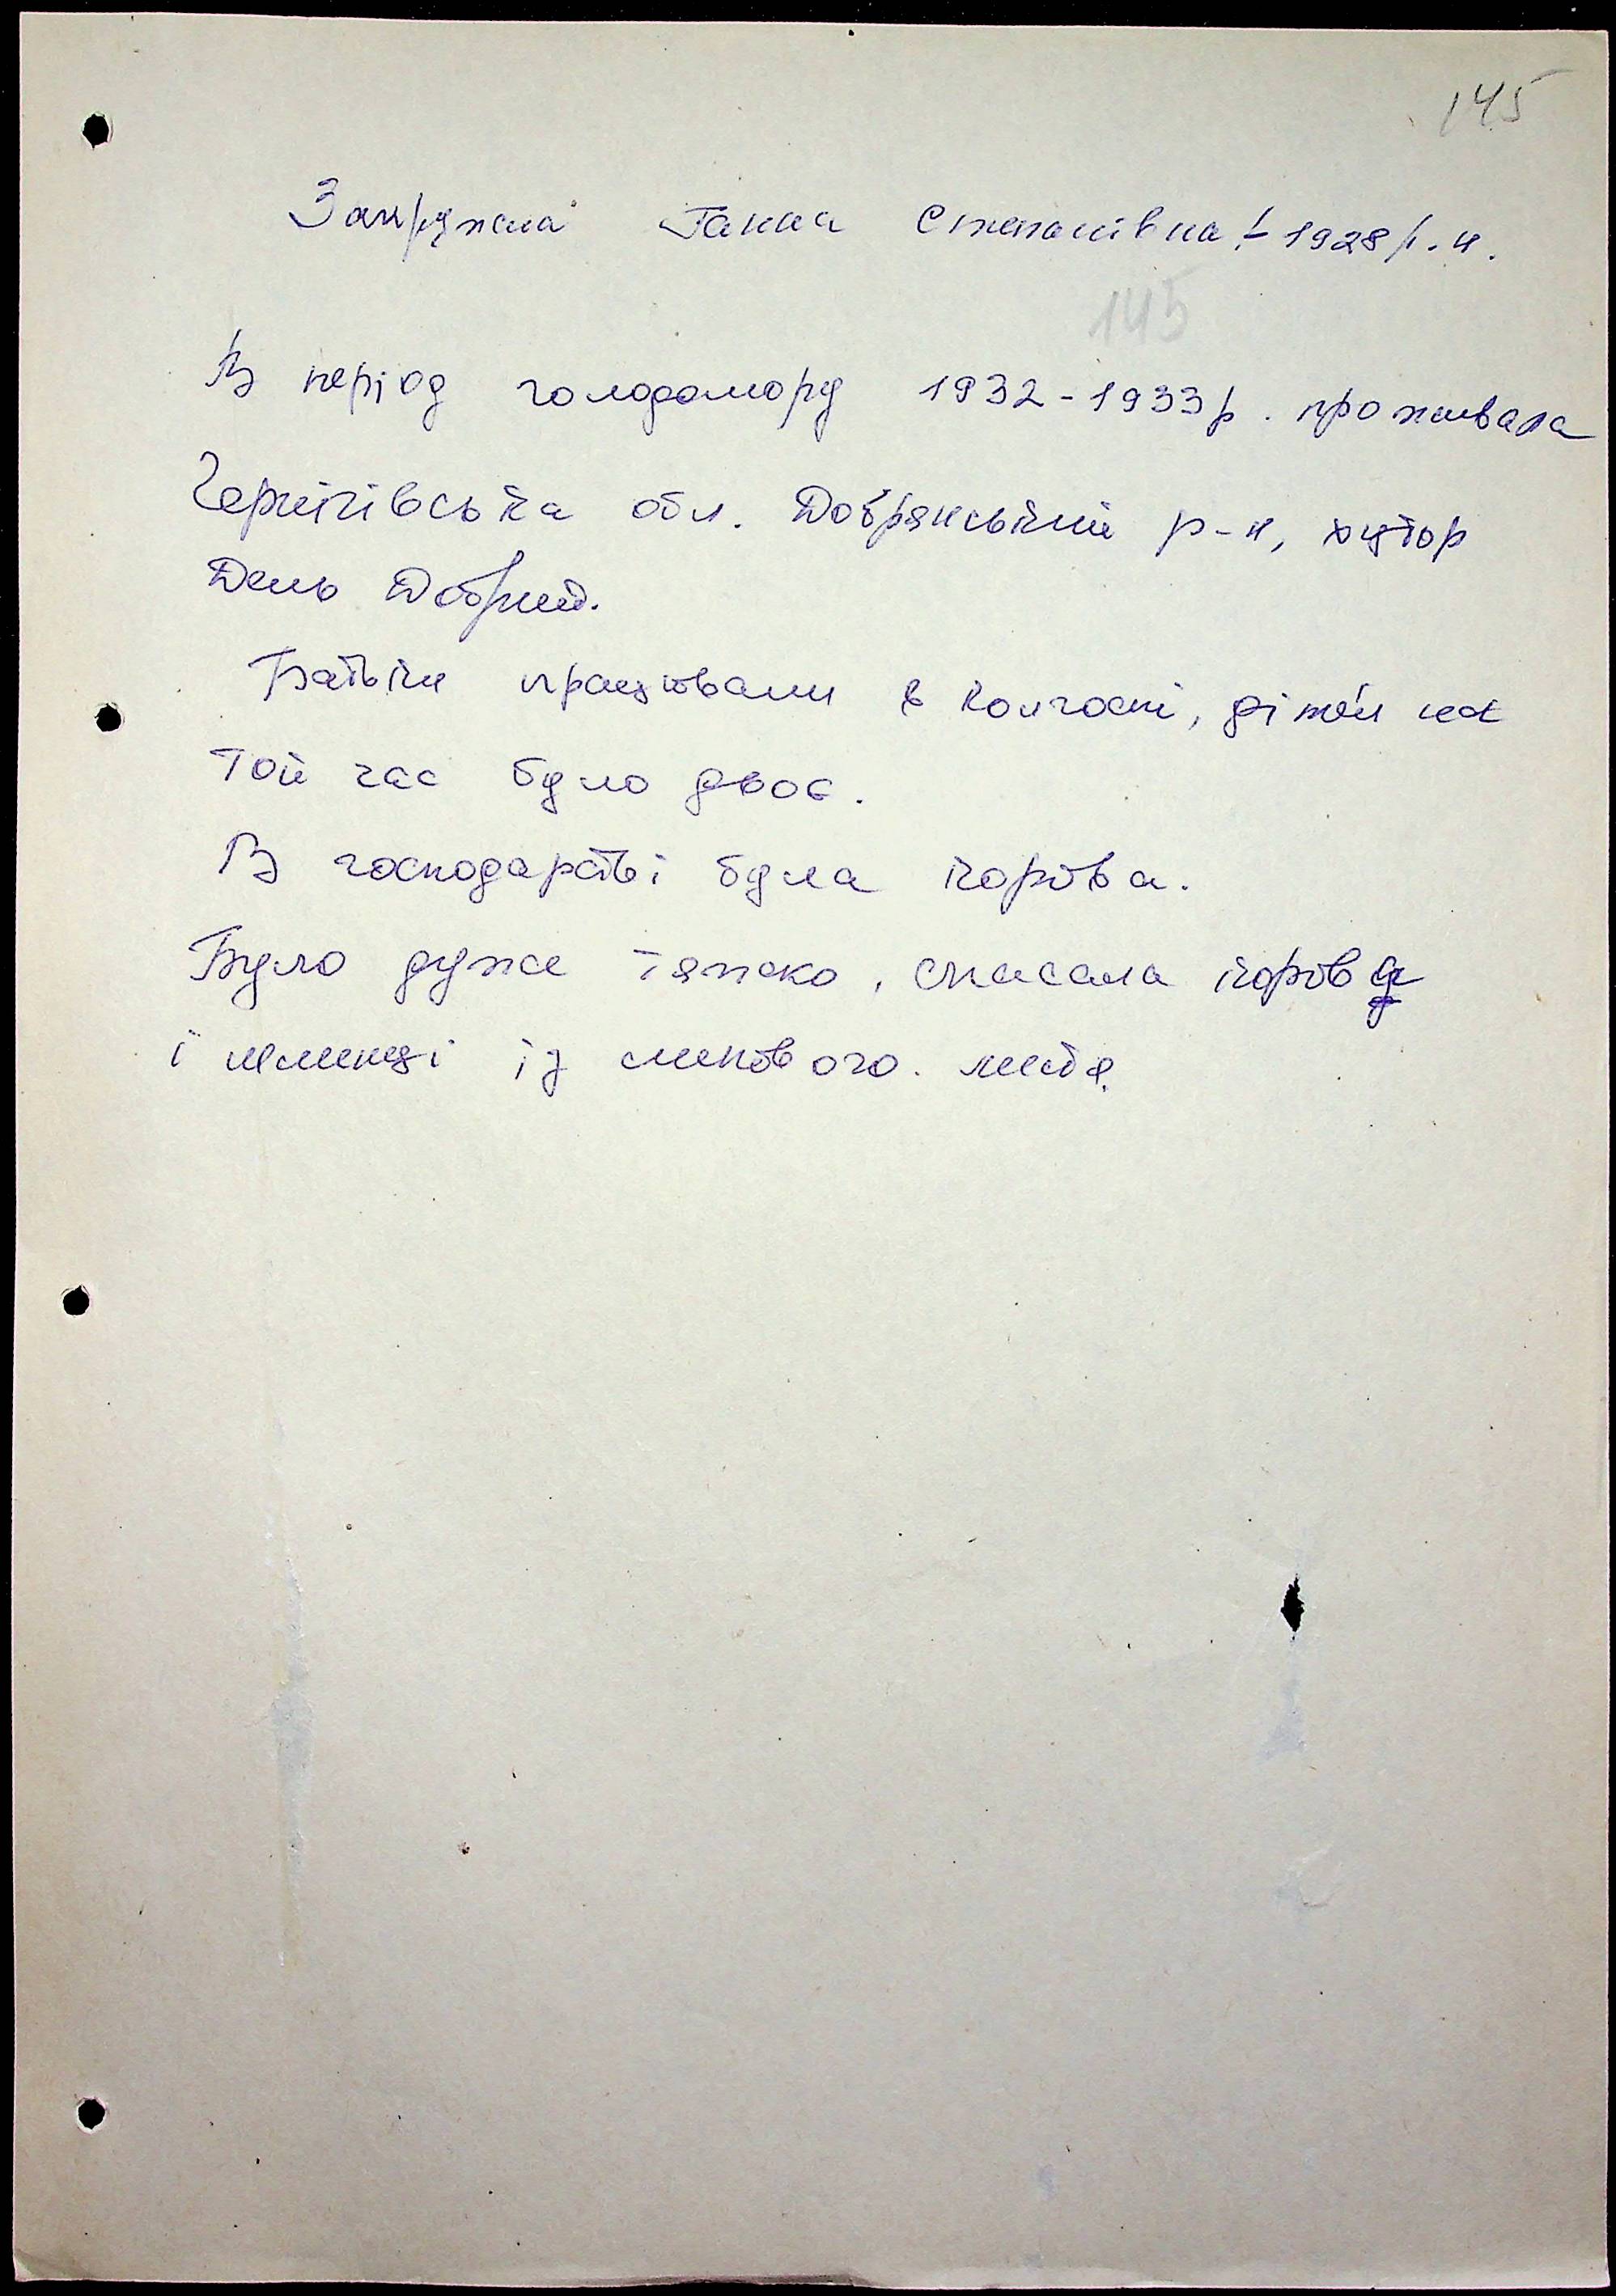 145
Закружна Ганна Степанівна - 1928 р.н.
145
В період голодомору 1932-1933р. проживала
Чернігівська обл. Добрянський р-н, хутор
День Добрий.
Батьки працювали в колгоспі, дітей на
той час було двоє.
В господарстві була корова.
Було дуже тяжко, спасала корова
і млинці із липового листя.